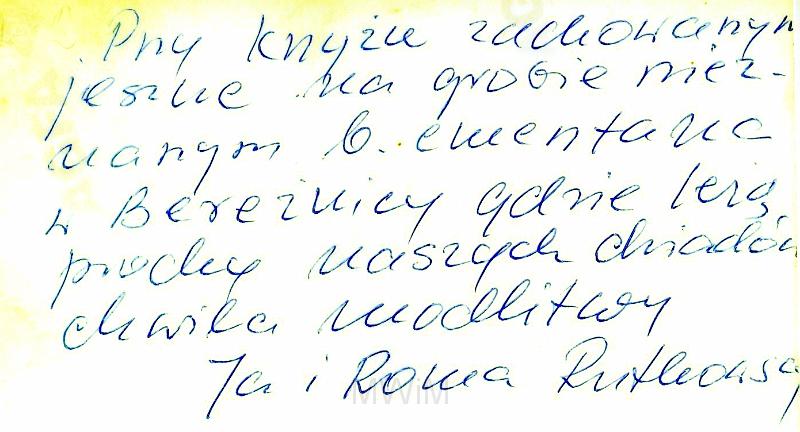 Przy krzyżu zachowanym
jeszcze na grobie niez-
nanym b. cmentarza
w Bereźnicy gdzie leżą
prochy naszych dziadów
chwila modlitwy
Ja i Roma Rutkowscy
MWiM